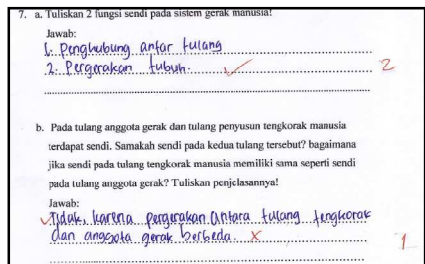 7. a. Tuliskan 2 fungsi sendi pada sistem gerak manusia!
Jawab:
1. Penghubung antar tulang
2. Pergerakan tubuh. 2
b. Pada tulang anggota gerak dan tulang penyusun tengkorak manusia
terdapat sendi. Samakah sendi pada kedua tulang tersebut? bagaimana
jika sendi pada tulang tengkorak manusia memiliki sama seperti sendi
pada tulang anggota gerak? Tuliskan penjelasannya!
Jawab:
Tidak, karena pergerakan antara tulang tengkorak
dan anggota gerak berbeda. 1